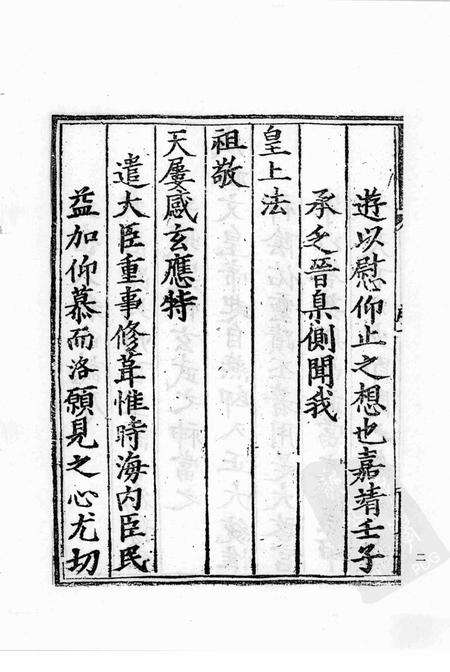 遊以慰仰止之想也嘉靖壬子
承乏晉臬側聞我
皇上法
祖敬
天屢感玄應特
遣大臣重事修葺惟時海内臣民
益加仰慕而洛願見之心尤切
二